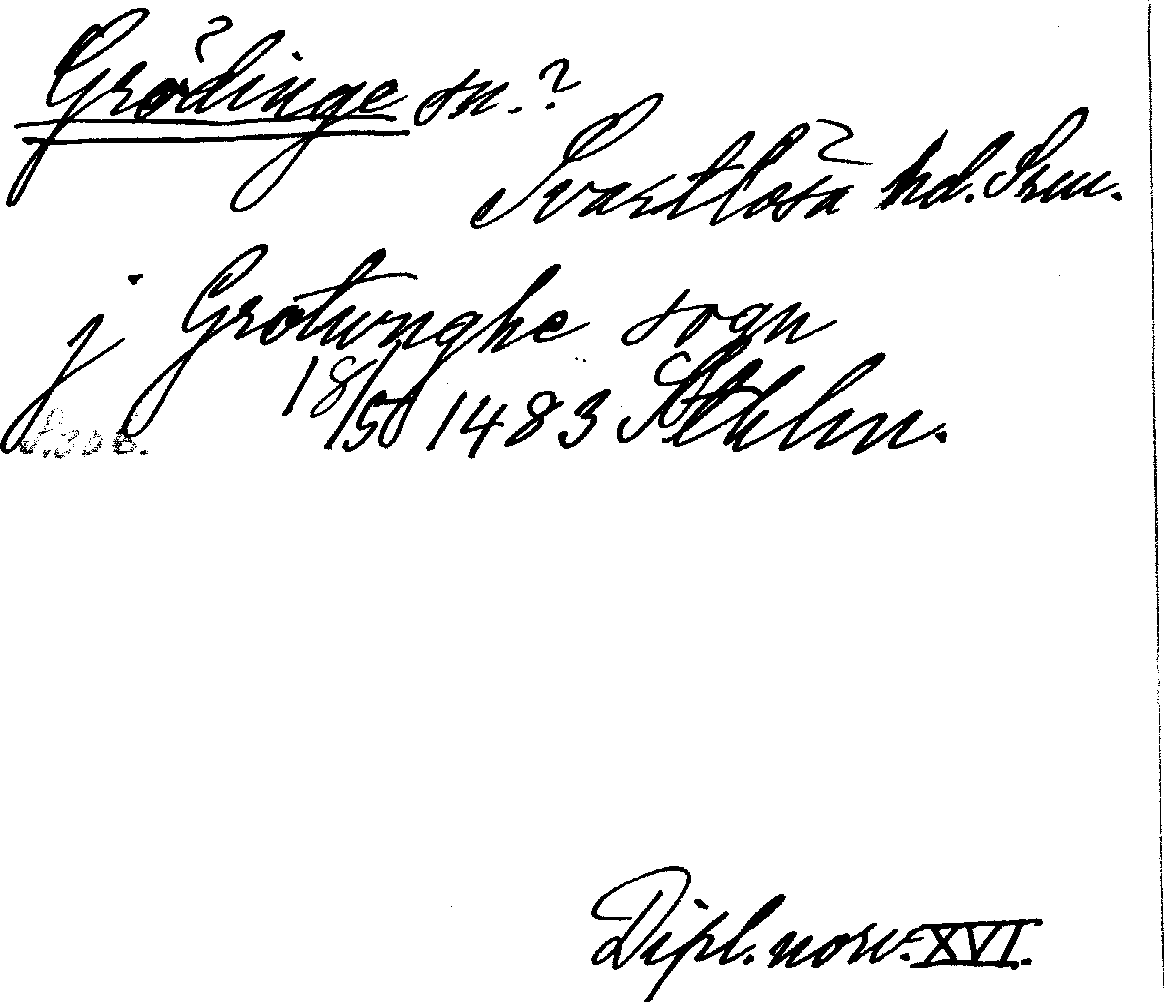 Grödinge sn.?
Svartlösa hd. Srm.
j Grotwnghe sogn
18/5 1483 Sthlm.
S. 306.
Dipl. norv. XVI.